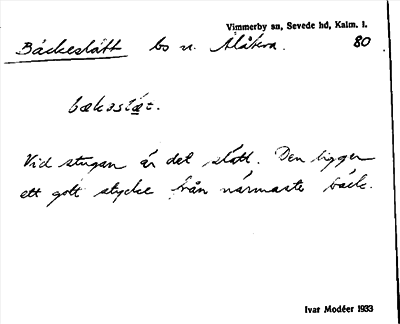 Vimmerby sn, Sevede hd, Kalm. l.
Bäckeslätt bo u. Ålåkra. 80
bækəslæt.
Vid stugan är det slätt. Den ligger
ett gott stycke från närmaste bäck.
Ivar Modéer 1933